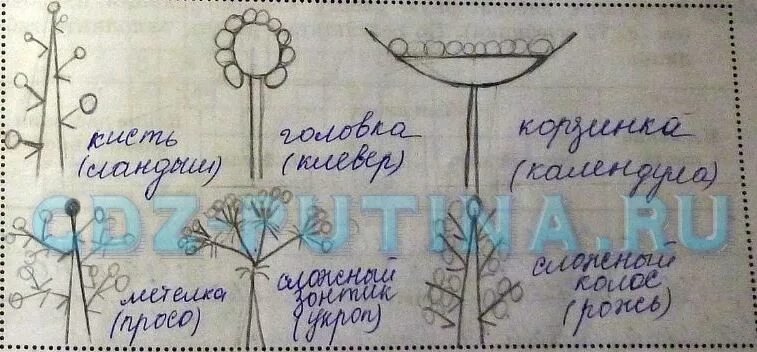 кисть
(ландыш)
головка
(клевер)
корзинка
(календула)
GDZ-PUTINA.RU
метелка
(просо)
сложный
зонтик
(укроп)
сложный
колос
(рожь)